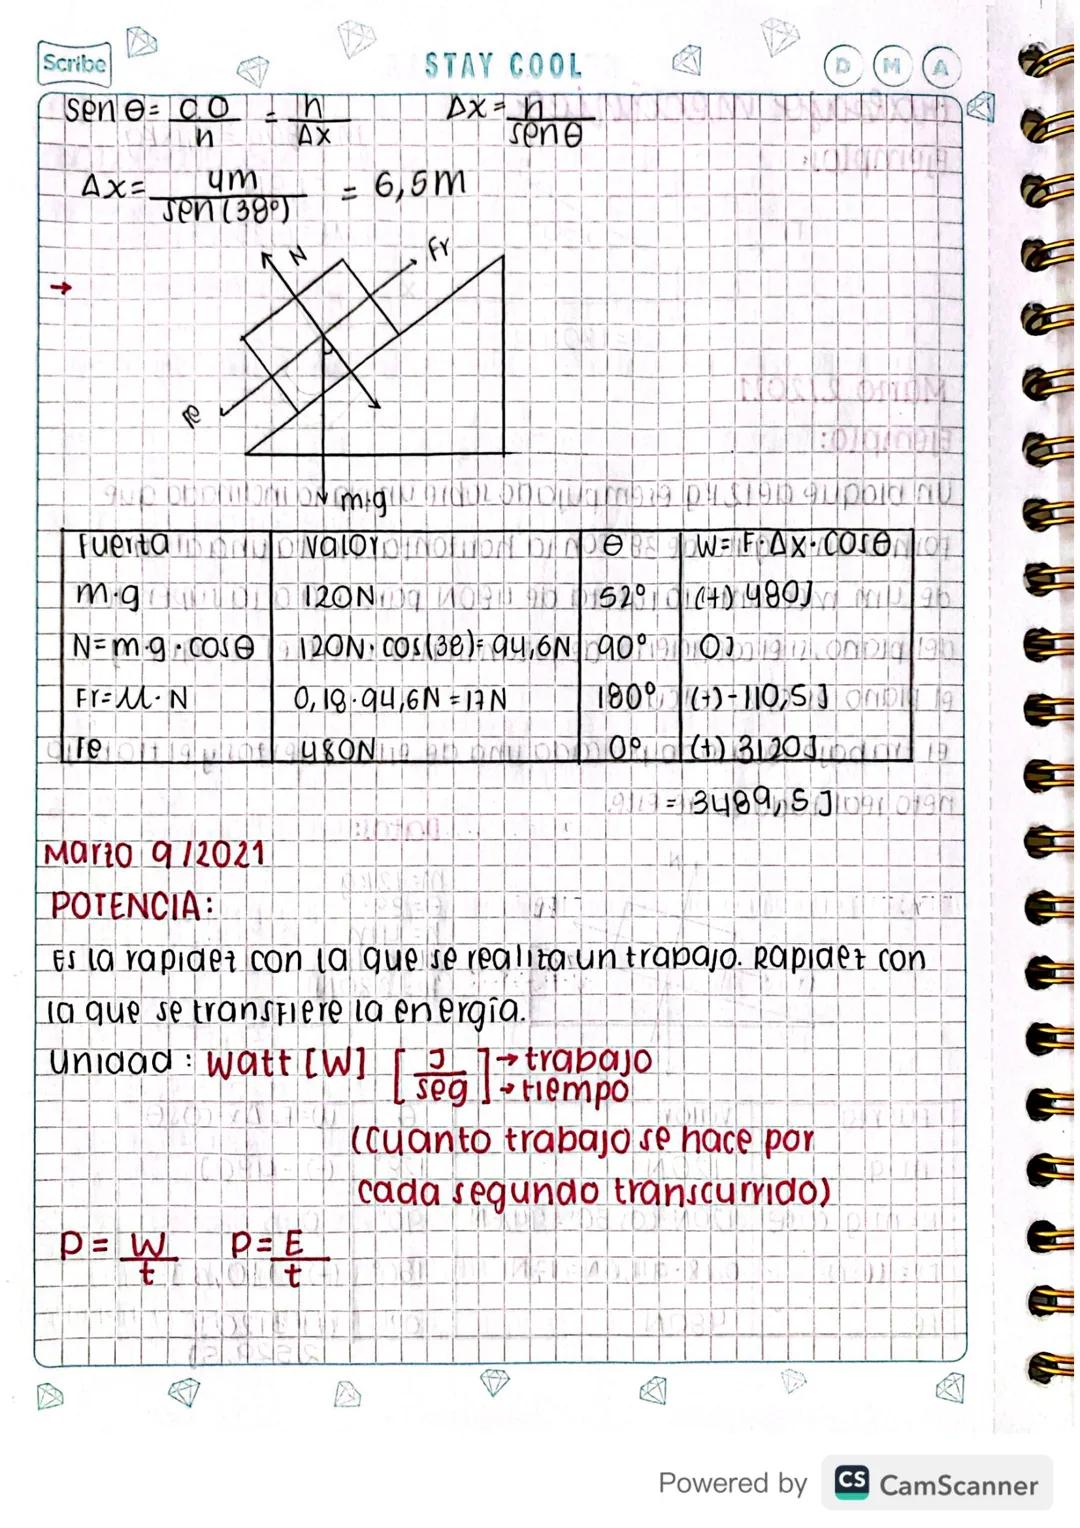 Scribe
STAY COOL
D M A
sen θ = C.O / h = h / Δx    Δx = h / sen θ
Δx = 4m / sen (38°) = 6,5m
N
Fr
→
Fe
m·g
Fuerza  Valor  θ  W= F·Δx·cosθ
m·g  120N  52°  (+) 480J
N=m·g·cosθ  120N·cos(38)= 94,6N  90°  0J
Fr=M·N  0,18·94,6N =17N  180°  (+)-110,5J
Fe  480N  0°  (+) 3120J
= 3489,5J
Marzo 9/2021
POTENCIA:
Es la rapidez con la que se realiza un trabajo. Rapidez con
la que se transfiere la energía.
Unidad: Watt [W] [J / seg] → trabajo → tiempo
(Cuanto trabajo se hace por
cada segundo transcurrido)
P = W / t    P = E / t
Powered by CS CamScanner